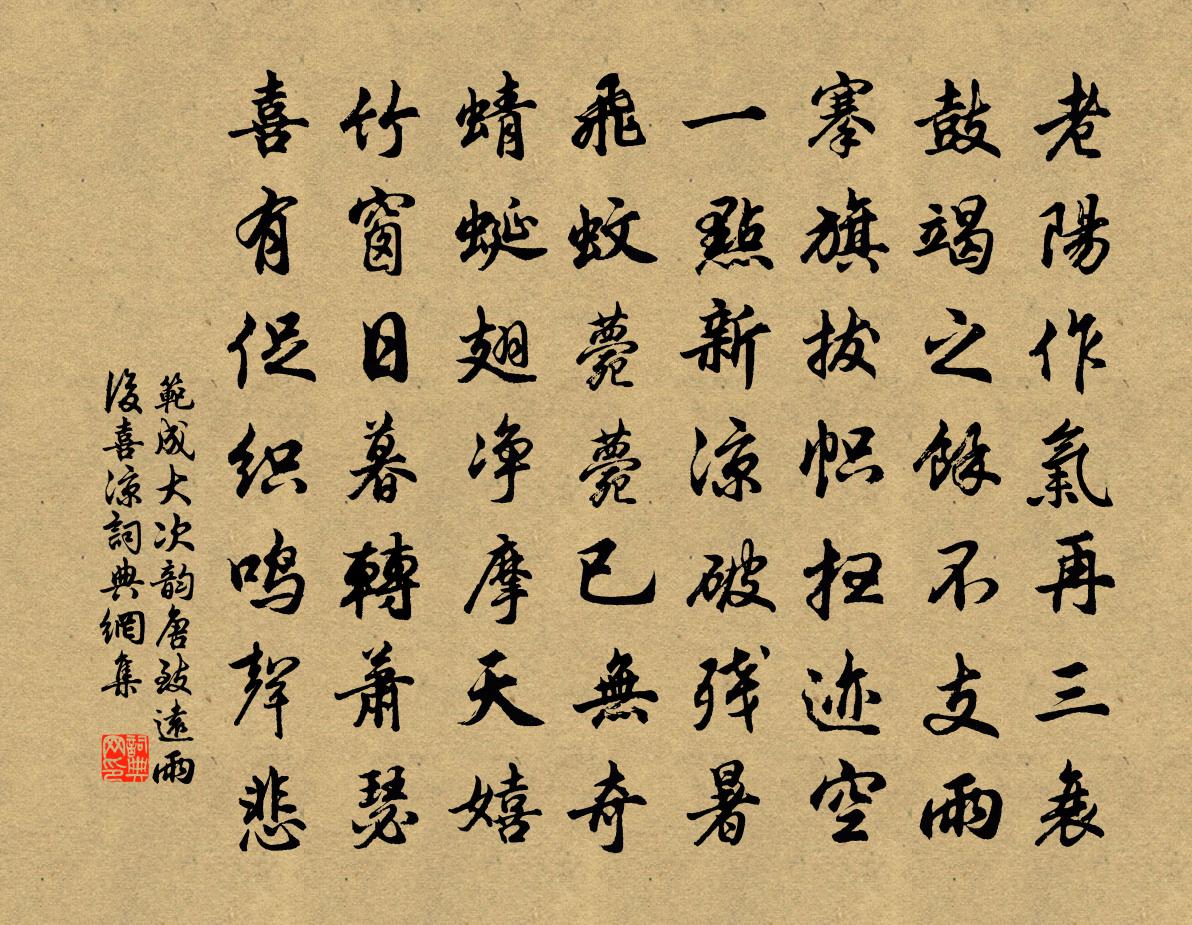 老陽作氣再三衰
鼓竭之餘不支雨
搴旗拔帜扫迹空
一點新涼破残暑
飛蚊薨薨已無奇
蜻蜓翅净摩天嬉
竹窗日暮轉蕭瑟
喜有促织鸣聲悲
範成大次韵唐致遠雨
後喜涼詞典網集
詞典
网印